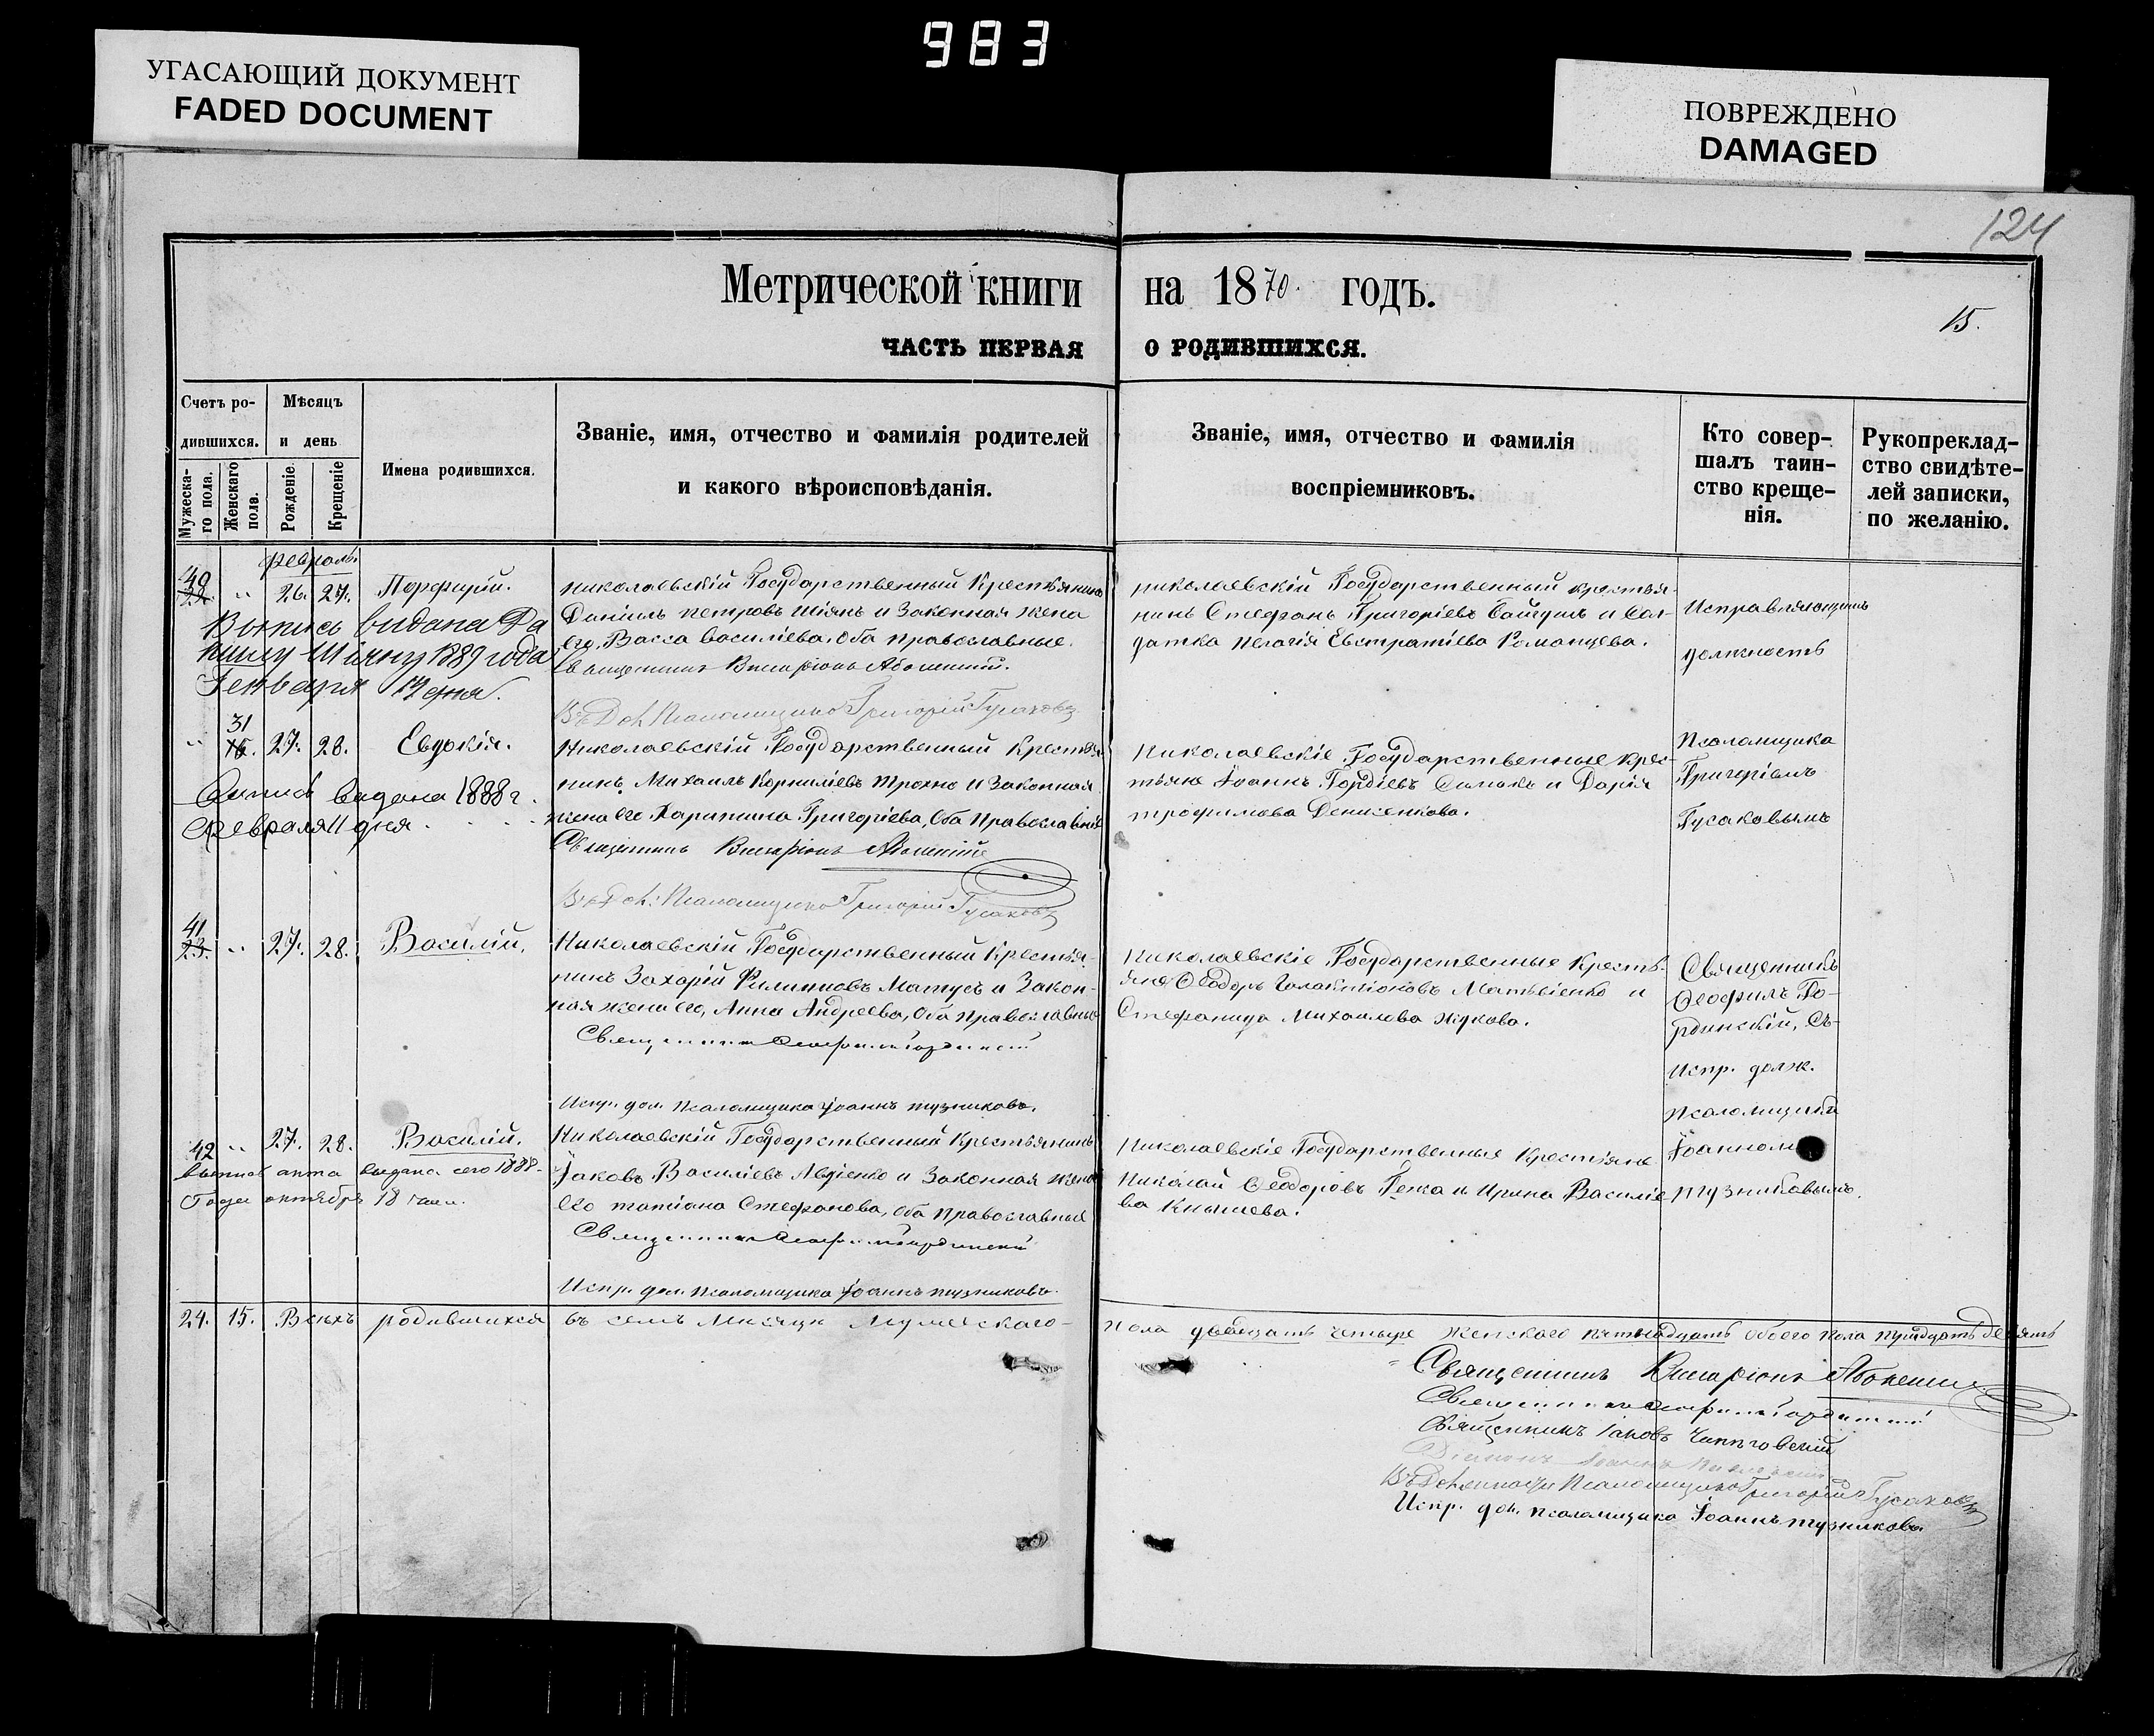 983
УГАСАЮЩИЙ ДОКУМЕНТ
FADED DOCUMENT
ПОВРЕЖДЕНО
DAMAGED
124
Метрической книги на 1870. годъ.
15.
ЧАСТЬ ПЕРВАЯ О РОДИВШИХСЯ.
Счетъ ро-
дившихся.
Мужеска-
го пола.
Женскаго
пола.
Мѣсяцъ
и день
Рожденіе.
Крещеніе
Имена родившихся.
Званіе, имя, отчество и фамилія родителей
и какого вѣроисповѣданія.
Званіе, имя, отчество и фамилія
воспріемниковъ.
Кто совер-
шалъ таин-
ство креще-
нія.
Рукопреклад-
ство свидѣте-
лей записки,
по желанію.
февраль
40
22. " 26. 27. Порфирій.
Выпись видана Да
нилу Шіяну 1889 года
Генваря 12 дня.
николаевскій Государственный Крестьянинъ
Даніилъ петровъ шіянъ и Законная жена
его, Васса василіева, оба православные.
Священникъ Виссаріонъ
Въ Дол. Псаломщика Григорій Гусаковъ
николаевскій Государственный крестья-
нинъ Стефанъ Григоріевъ и Сол-
датка пелагія Евстратіева Романцева.
Исправляющимъ
должность
31
15. 27. 28. Евдокія.
выдана 1888 г.
Февраля 11 дня
Николаевскій Государственный Крестья-
нинъ, Михаилъ Корниліевъ Трохно и Законная
жена его Харитина Григоріева, Оба православные
Священникъ Виссаріонъ
Въ Дол. Псаломщика Григорій Гусаковъ
Николаевскіе Государственные крес-
тьяне Іоаннъ Гордіевъ и Дарія
трофимова Денисенкова.
Псаломщика
Григоріемъ
Гусаковымъ
41
23. " 27. 28. Василій.
Николаевскій Государственный Крестья-
нинъ Захарій Филипповъ Матусь и Закон-
ная жена его, Анна Андреева, Оба православные
Священникъ
Испр. дол. псаломщика Іоаннъ пузниковъ.
Николаевскіе Государственные Кресть-
яне Ѳеодоръ Галактіоновъ Матвіенко и
Стефанида Михаилова жукова.
Священникъ
Ѳеофилъ Го-
рдинскій, Съ
Испр. долж.
псаломщика
42 " 27. 28. Василій.
выпись акта выдана сего 1888-
Года октября 18
Николаевскій Государственный Крестьянинъ
Іаковъ Василіевъ Авдіенко и Законная жена
его татіана Стефанова, оба православные
Священникъ
Испр. дол. псаломщика Іоаннъ пузниковъ.
Николаевскіе Государственные Крестьяне
Николай Ѳеодоровъ и Ирина Василіе-
ва Кнышева.
Іоанномъ
пузниковымъ.
24. 15. Всѣхъ родившихся въ семъ Мѣсяцѣ Мужескаго-
пола двадцать четыре Женскаго пятнадцать Обоего пола тридцать девять
Священникъ Виссаріонъ
Священникъ
Священникъ Іаковъ
Въ Должности Псаломщика Григорій Гусаковъ
Испр. дол. псаломщика Іоаннъ пузниковъ